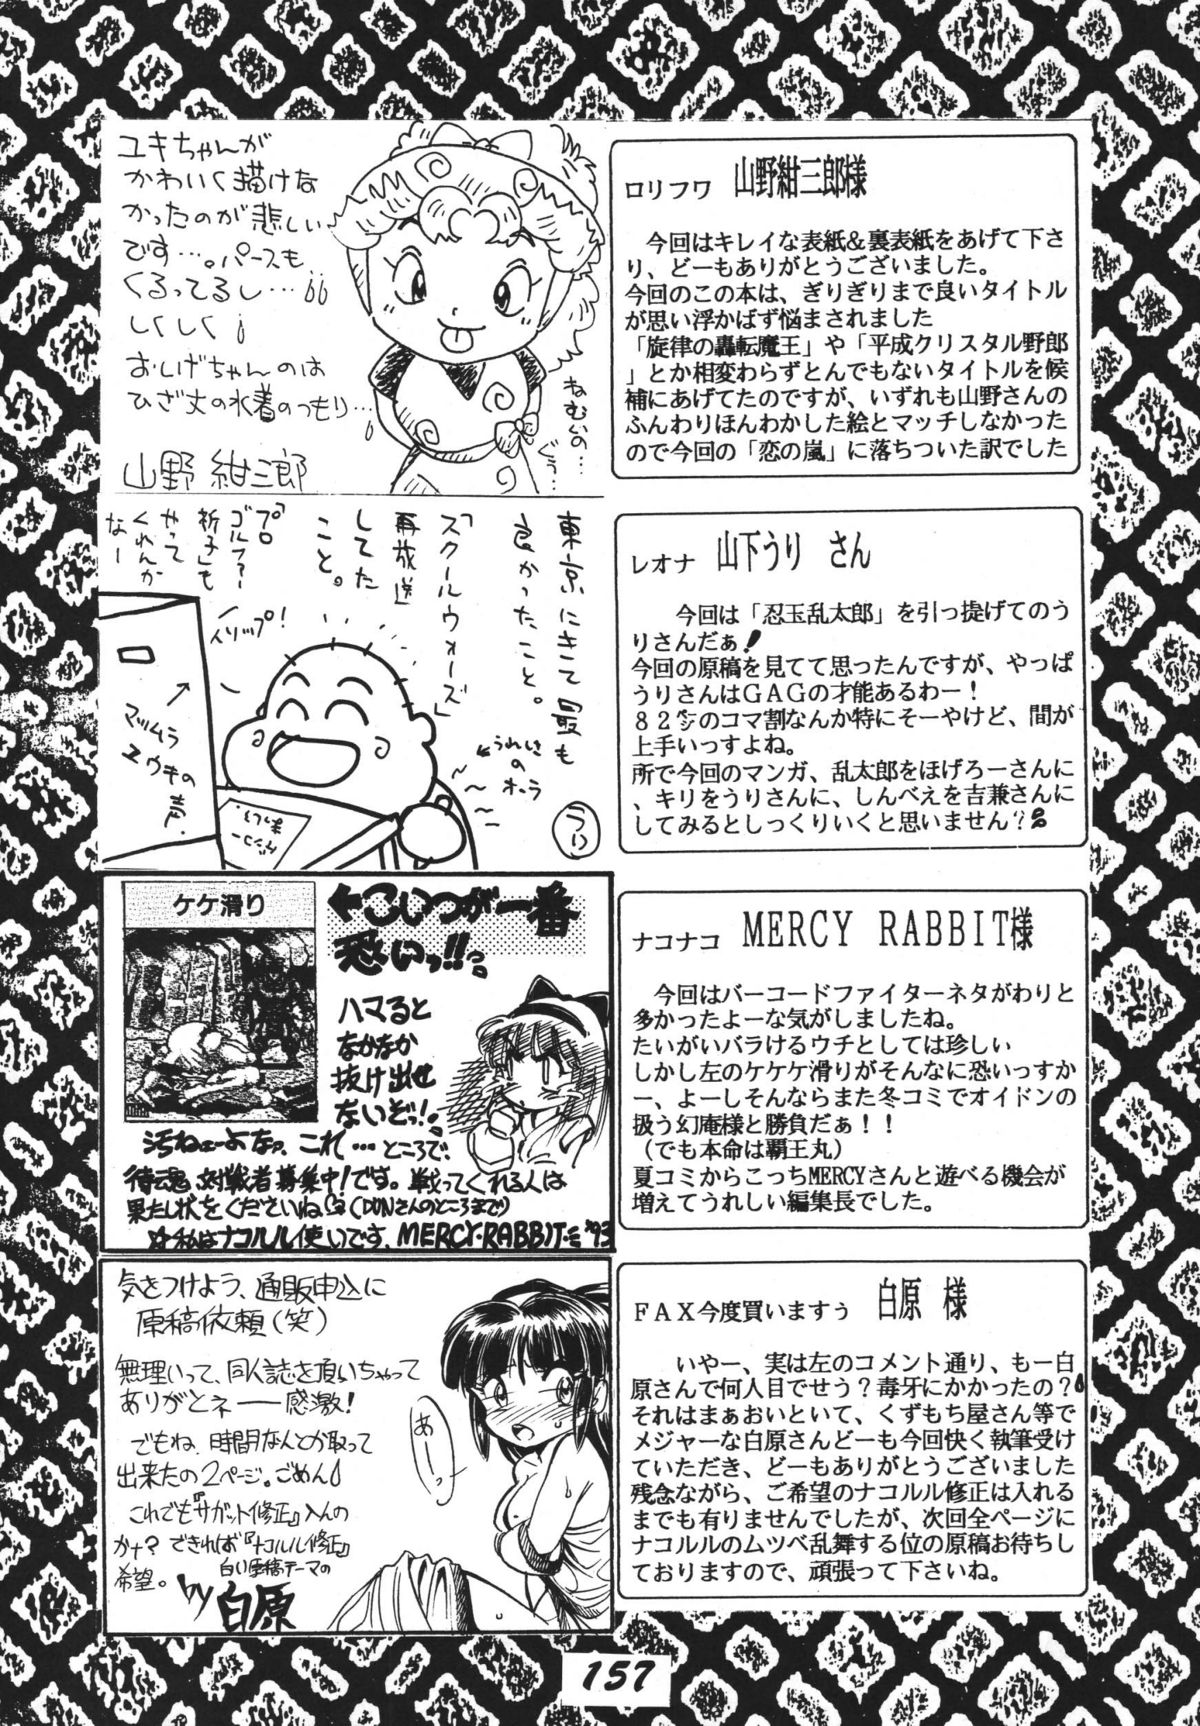 ユキちゃんが
かわいく描けな
かったのが悲しい
です…。パースも
くるってるし…
しくしく
おしげちゃんのは
ひざ丈の水着のつもり…
山野紺三郎
ねむいの…
ぐぅ…
ロリフワ 山野紺三郎様
今回はキレイな表紙&裏表紙をあげて下さ
り、どーもありがとうございました。
今回のこの本は、ぎりぎりまで良いタイトル
が思い浮かばず悩まされました
「旋律の轟転魔王」や「平成クリスタル野郎
」とか相変わらずとんでもないタイトルを候
補にあげてたのですが、いずれも山野さんの
ふんわりほんわかした絵とマッチしなかった
ので今回の「恋の嵐」に落ちついた訳でした
東京にきて最も
良かったこと。
「スクールウォーズ」
再放送
してた
こと。
「プロ
ゴルファー
祈子」も
やって
くれんか
なー
イソップ!
マツムラ
ユウキの声
うれしさ
の
オーラ
うり
レオナ 山下うり さん
今回は「忍玉乱太郎」を引っ提げてのう
りさんだぁ!
今回の原稿を見てて思ったんですが、やっぱ
うりさんはGAGの才能あるわー!
82㌻のコマ割なんか特にそーやけど、間が
上手いっすよね。
所で今回のマンガ、乱太郎をほげろーさんに
、キリをうりさんに、しんべえを吉兼さんに
してみるとしっくりいくと思いません?
ケケ滑り
←こいつが一番
恐いっ!!
ハマると
なかなか
抜け出せ
ないぞっ!
汚ねェーよなァ、これ…ところで
侍魂対戦者募集中!です。戦ってくれる人は
果たし状をくださいね(DUNさんのところまで)
☆私はナコルル使いです。MERCY・RABBIT '93
ナコナコ MERCY RABBIT様
今回はバーコードファイターネタがわりと
多かったよーな気がしましたね。
たいがいバラけるウチとしては珍しい
しかし左のケケケ滑りがそんなに恐いっすか
ー、よーしそんならまた冬コミでオイドンの
扱う幻庵様と勝負だぁ!!
(でも本命は覇王丸)
夏コミからこっちMERCYさんと遊べる機会が
増えてうれしい編集長でした。
気をつけよう、通販申込に
原稿依頼(笑)
無理いって、同人誌を頂いちゃって
ありがとネ──感激!
でもね、時間なんとか取って
出来たの2ページ。ごめん
これでも『サガット修正』入んの
かナ?できれば『ナコルル修正』
希望。
白い原稿テーマの
by 白原
あーっ
FAX今度買いますぅ 白原 様
いやー、実は左のコメント通り、もー白
原さんで何人目でせう?毒牙にかかったの?
それはまぁおいといて、くずもち屋さん等で
メジャーな白原さんどーも今回快く執筆受け
ていただき、どーもありがとうございました
残念ながら、ご希望のナコルル修正は入れる
までも有りませんでしたが、次回全ページに
ナコルルのムツベ乱舞する位の原稿お待ちし
ておりますので、頑張って下さいね。
157